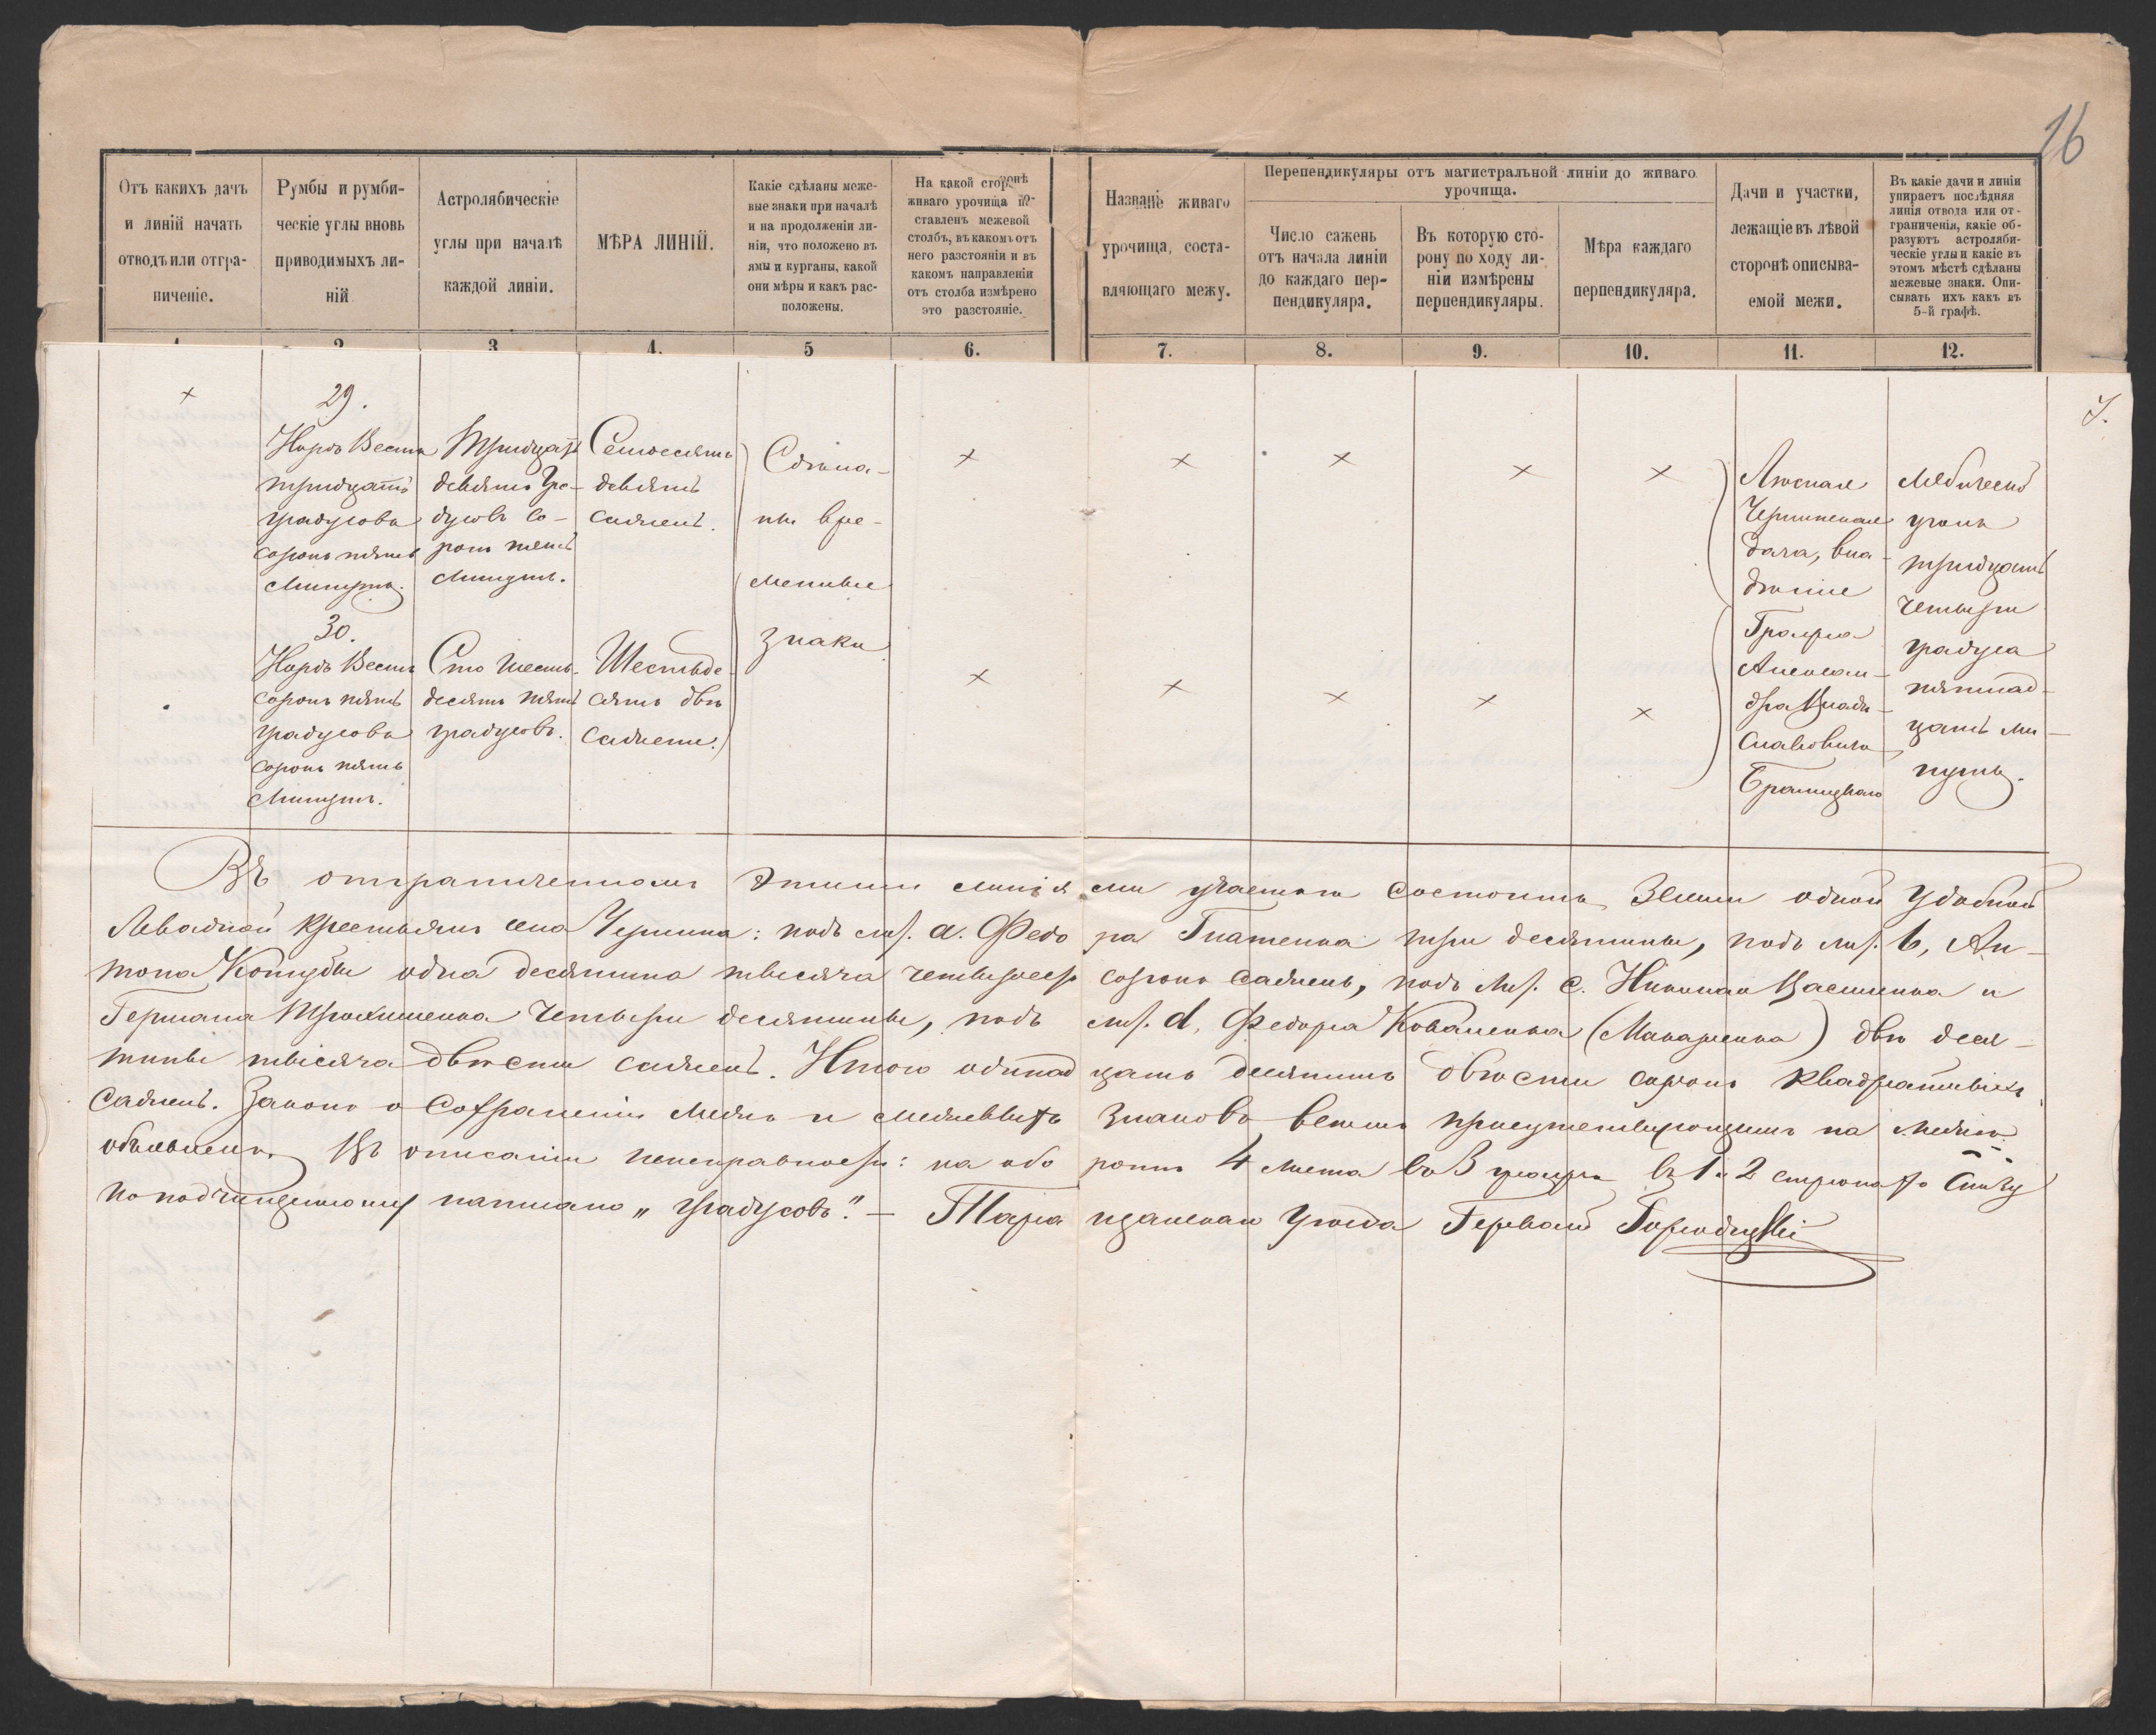 16
Отъ какихъ дачъ
и линій начать
отводъ или отгра-
ниченіе.
Румбы и румби-
ческіе углы вновь
приводимыхъ ли-
ній
Астролябическіе
углы при началѣ
каждой линіи.
МѢРА ЛИНІЙ.
Какіе сдѣланы меже-
вые знаки при началѣ
и на продолженіи ли-
ніи, что положено въ
ямы и курганы, какой
они мѣры и какъ рас-
положены.
На какой сторонѣ
живаго урочища по-
ставленъ межевой
столбъ, въ какомъ отъ
него разстояніи и въ
какомъ направленіи
отъ столба измѣрено
это разстояніе.
Названіе живаго
урочища, соста-
вляющаго межу.
Перепендикуляры отъ магистральной линіи до живаго
урочища.
Число сажень
отъ начала линіи
до каждаго пер-
пендикуляра.
Въ которую сто-
рону по ходу ли-
ніи измѣрены
перпендикуляры.
Мѣра каждаго
перпендикуляра.
Дачи и участки,
лежащіе въ лѣвой
сторонѣ описыва-
емой межи.
Въ какіе дачи и линіи
упираетъ послѣдняя
линія отвода или от-
граниченія, какіе об-
разуютъ астроляби-
ческіе углы и какіе въ
этомъ мѣстѣ сдѣланы
межевые знаки. Опи-
сывать ихъ какъ въ
5-й графѣ.
1. 2. 3. 4. 5 6. 7. 8. 9. 10. 11. 12.
29.
Нордъ Вестъ
тридцать
градусовъ
сорокъ пять
Минутъ.
Тридцать
девять Гра-
дусовъ со-
рокъ пять
Минутъ.
Семдесятъ
девять
сажень.
Сдѣла-
ны вре-
менные
знаки.
30.
Нордъ Вестъ
сорокъ пять
градусовъ
сорокъ пять
Минутъ.
Сто шесть-
десятъ пять
градусовъ.
Шестьде-
сятъ двѣ
сажени.
дача, вла-
дѣніе
Графа
Александ-
дра Влади-
славовича
Браницкаго
уголъ
тридцать
четыри
градуса
пятнад-
цать ми-
нутъ.
Въ отграниченномъ этими линіями участкѣ состоитъ Земли одной удобной
Левадной крестьянъ села Чернина: подъ лит. a. Федора Гнатенка три десятины, подъ лит. b, Ан-
тона Котубы одна десятина тысяча четыреста сорокъ сажень, подъ лит. c. Николая Василенка и
Германа Трохименка четыри десятины, подъ лит. d, Федора Коваленка (Макаренка) двѣ деся-
тины тысяча двѣсти сажень. Итого одинадцать десятинъ двѣсти сорокъ квадратныхъ
Сажень. Законъ о Сохраненіи Межъ и межевыхъ Знаковъ всѣмъ присутствующимъ на межѣ
объявленъ. Въ описаніи неисправности: на оборотѣ 4 листа въ 3 графѣ въ 1 и 2 строкахъ снизу
по подчищенному написано „градусовъ". — Таращанскаго уѣзда